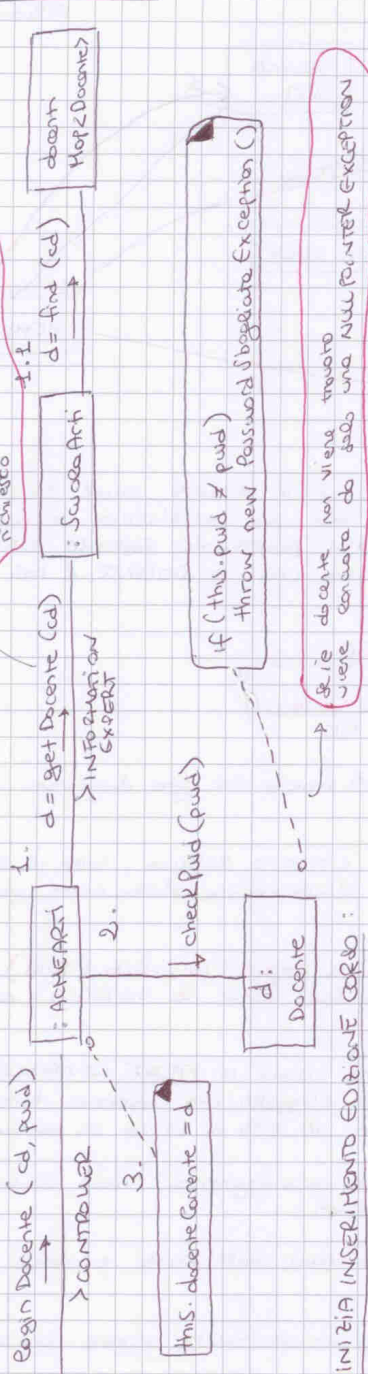 login Docente (cd, pwd)
> CONTROLLER
: ACMEARTI
1.
d = get Docente (cd)
> INFORMATION
EXPERT
richiesto
: ScuolaArti
1.1
d = find (cd)
docenti
Map<Docente>
2.
checkPwd (pwd)
3.
this. docenteCorrente = d
d:
Docente
if (this.pwd ≠ pwd)
throw new PasswordSbagliata Exception ()
se ie docente non viene trovato
viene lanciata da sola una NULL POINTER EXCEPTION
INIZIA INSERIMENTO EDIZIONE CORSO :